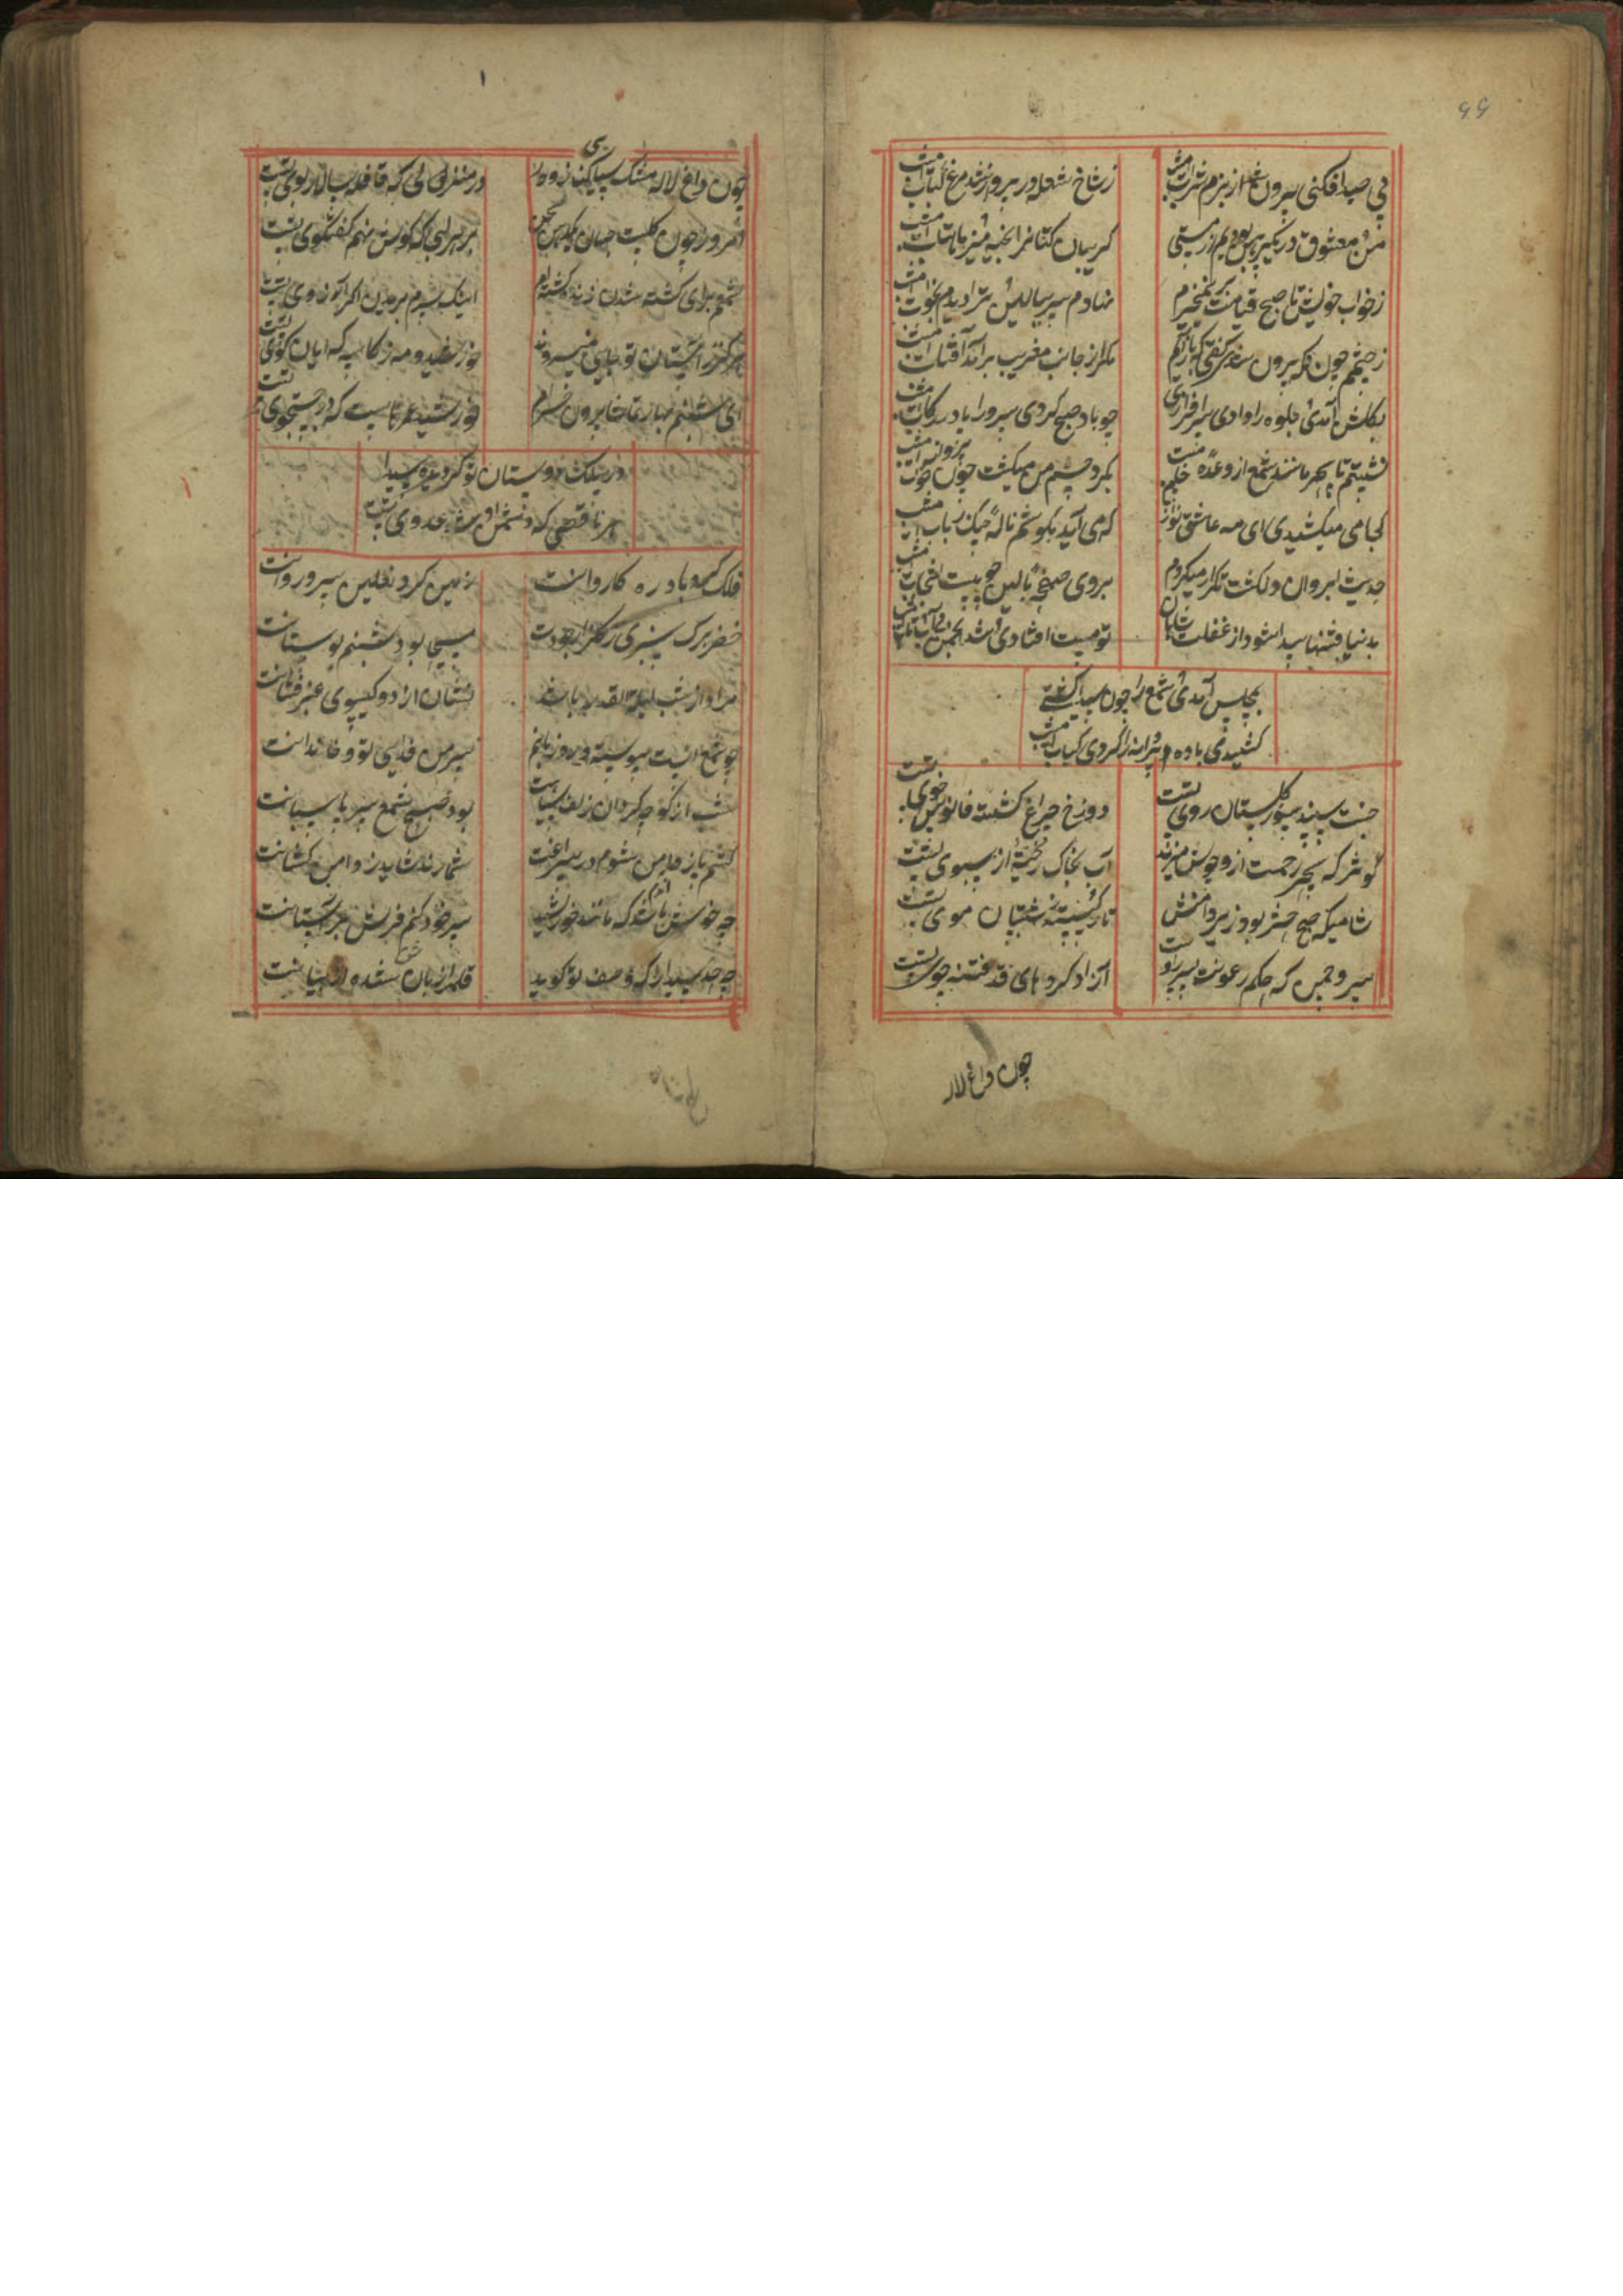 پی صید افکنی بیرون شدی از بزم شراب امشب
ز شاخ شعله در پرواز شد مرغ کباب امشب
من و معشوق در یک پیرهن بودیم از مستی
گریبان کتانرا بخیه میزد ماهتاب امشب
ز خواب خویش تا صبح قیامت بر نمیخیزم
نهادم سر ببالینش ترا دیدم بخواب امشب
ز چشمم چون نکه بیرون شدی گفتی که باز آیم
مکر از جانب مغرب برآید آفتاب امشب
بکلشن آمدی جلوه را دادی سرافرازی
چو باد صبح کردی سرو را پا در رکاب امشب
نشستم تا سحر مانند شمع از وعده
بکرد چشم من میکشت چون پروانه خواب امشب
کجا می میکشیدی ای مه عاشق نواز من
که می آید بکوشم ناله چنک و رباب امشب
حدیث ابروان دلکشت تکرار میکردم
بروی صفحه بالین چو بیت انتخاب امشب
بدنیا فتنها پیدا شود از غفلت شاهان
تو مست افتادی و شد انجمن خراب امشب
بمجلس آمدی شمع را چون سیدا کشتی
کشیدی باده و پروانه را کردی کباب امشب
جنت سپند سوز کلستان روی تست
دوزخ چراغ کشته فانوس خوی تست
کوثر که بحر رحمت ازو جوش میزند
آب بخاک ریخته از سبوی تست
شامیکه صبح حشر بود زیر دامنش
تار کسسته ز شبستان موی تست
سرو چمن که حکم رعونت بسرو
آزاد کرد های قد فتنه جوی تست
چون داغ لاله
چون داغ لاله مشک سیاهیکند ز دور
در منزلی که قافله سالار بوی تست
امروز چون کلیت جهان
بر هر لبی که کوش نهم کفتکوی تست
شمع برای کشته شدن زنده کشته ام
اینک سرم بریدن اکر آرزوی تست
هرکز ز آستان تو جایی نمیروند
خورشید و مه دو کاسه کدایان کوی تست
ای شبنم بهار تماشا برون خرام
خورشید عمرهاست که در جستجوی تست
در ملک دوستان تو کردیده سیدا
هر ناقصی که دشمن او شد عدوی تست
فلک کرد باد ره کاروانت
زمین کرد نعلین سرو روانت
خضر برک سبزی ز کلزار جودت
مسیحا بود شبنم بوستانت
مراد از شب لیلة القدر باشد
نشان از دو کیسوی عنبر فشانت
چو شمع است پیوسته ورد زبانم
سر من فدای تو و خاندانت
شب از کوچه کردان زلف سیاهت
بود صبح شمع سر پاسبانت
چه خوش باشد آندم که مانند خورشید
سر خود کنم فرش بر آستانت
چه حد سیدا را که وصف تو کوید
قلم از زبان شده